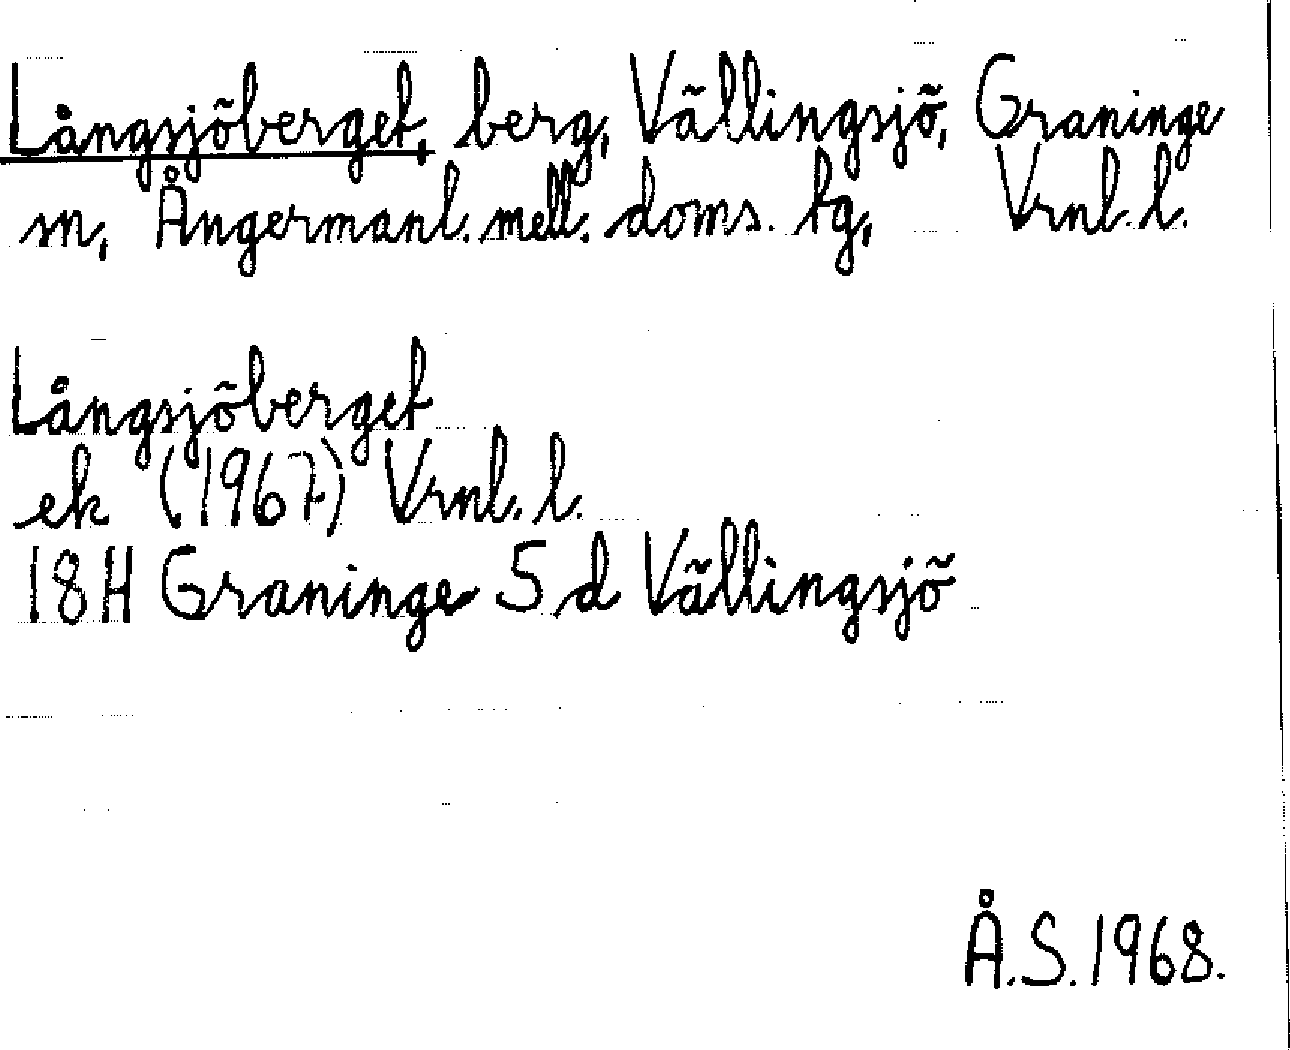 Långsjöberget, berg, Vällingsjö, Graninge
sn, Ångermanl. mell. doms. tg, Vrnl. l.
Långsjöberget
ek (1967) Vrnl. l.
18H Graninge S d Vällingsjö
Å.S. 1968.